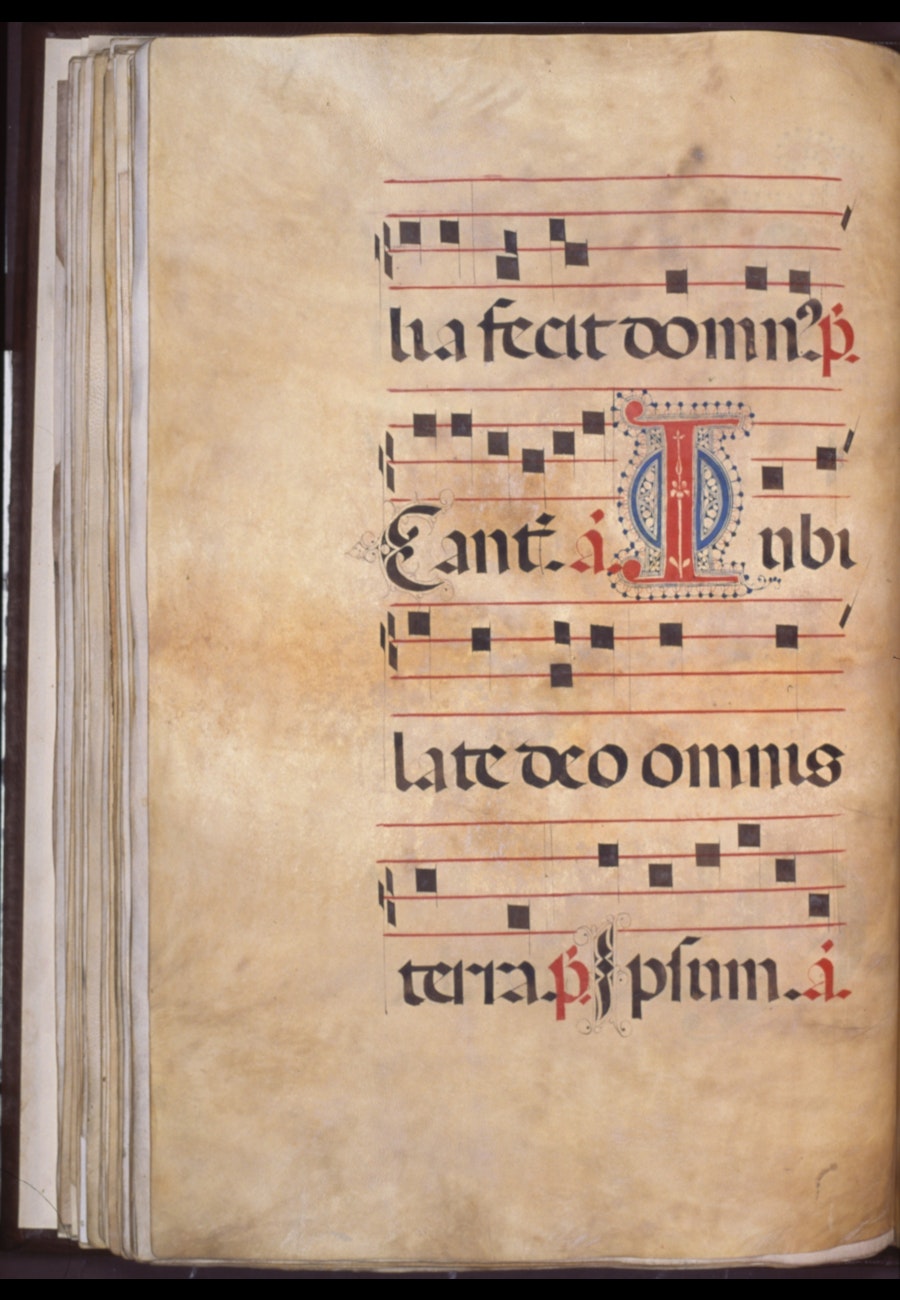 lia fecit domin⁹. p̄.
Cant̄. á. I ubi
late deo omnis
terra. p̄. Ipsum. á.